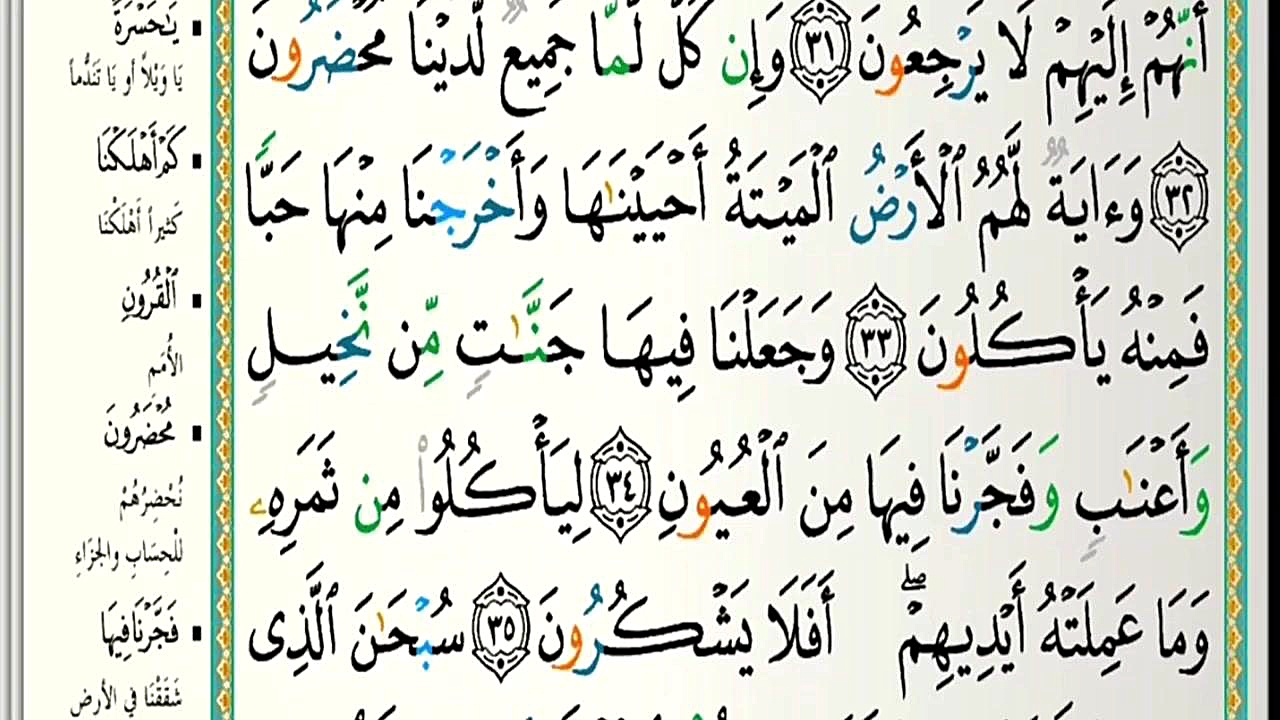 أَنَّهُمْ إِلَيْهِمْ لَا يَرْجِعُونَ ٣١ وَإِن كُلٌّ لَّمَّا جَمِيعٌ لَّدَيْنَا مُحْضَرُونَ
٣٢ وَءَايَةٌ لَّهُمُ ٱلْأَرْضُ ٱلْمَيْتَةُ أَحْيَيْنَٰهَا وَأَخْرَجْنَا مِنْهَا حَبًّا
فَمِنْهُ يَأْكُلُونَ ٣٣ وَجَعَلْنَا فِيهَا جَنَّٰتٍ مِّن نَّخِيلٍ
وَأَعْنَٰبٍ وَفَجَّرْنَا فِيهَا مِنَ ٱلْعُيُونِ ٣٤ لِيَأْكُلُوا۟ مِن ثَمَرِهِۦ
وَمَا عَمِلَتْهُ أَيْدِيهِمْ ۖ أَفَلَا يَشْكُرُونَ ٣٥ سُبْحَٰنَ ٱلَّذِى
يَٰحَسْرَةً
يَا وَيْلاً أو يَا تَنَدُّماً
كَمْ أَهْلَكْنَا
كَثِيراً أَهْلَكْنَا
ٱلْقُرُونِ
الأُمَمِ
مُحْضَرُونَ
نُحْضِرُهُمْ
لِلْحِسَابِ والجَزَاءِ
فَجَّرْنَا فِيهَا
شَقَقْنَا فِي الأرضِ